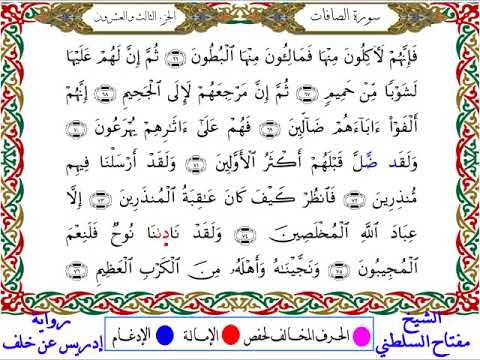 سورة الصافات
الجزء الثالث والعشرون
فَإِنَّهُمْ لَأٓكِلُونَ مِنْهَا فَمَالِـُٔونَ مِنْهَا ٱلْبُطُونَ ٦٦ ثُمَّ إِنَّ لَهُمْ عَلَيْهَا
لَشَوْبًا مِّنْ حَمِيمٍ ٦٧ ثُمَّ إِنَّ مَرْجِعَهُمْ لَإِلَى ٱلْجَحِيمِ ٦٨ إِنَّهُمْ
أَلْفَوْا۟ ءَابَآءَهُمْ ضَآلِّينَ ٦٩ فَهُمْ عَلَىٰٓ ءَاثَٰرِهِمْ يُهْرَعُونَ ٧٠
وَلَقَد ضَّلَّ قَبْلَهُمْ أَكْثَرُ ٱلْأَوَّلِينَ ٧١ وَلَقَدْ أَرْسَلْنَا فِيهِم
مُّنذِرِينَ ٧٢ فَٱنظُرْ كَيْفَ كَانَ عَٰقِبَةُ ٱلْمُنذَرِينَ ٧٣ إِلَّا
عِبَادَ ٱللَّهِ ٱلْمُخْلَصِينَ ٧٤ وَلَقَدْ نَادِىٰنَا نُوحٌ فَلَنِعْمَ
ٱلْمُجِيبُونَ ٧٥ وَنَجَّيْنَٰهُ وَأَهْلَهُۥ مِنَ ٱلْكَرْبِ ٱلْعَظِيمِ ٧٦
الشيخ
مفتاح السلطني
الحرف المخالف لحفص الإمالة الإدغام
رواية
إدريس عن خلف